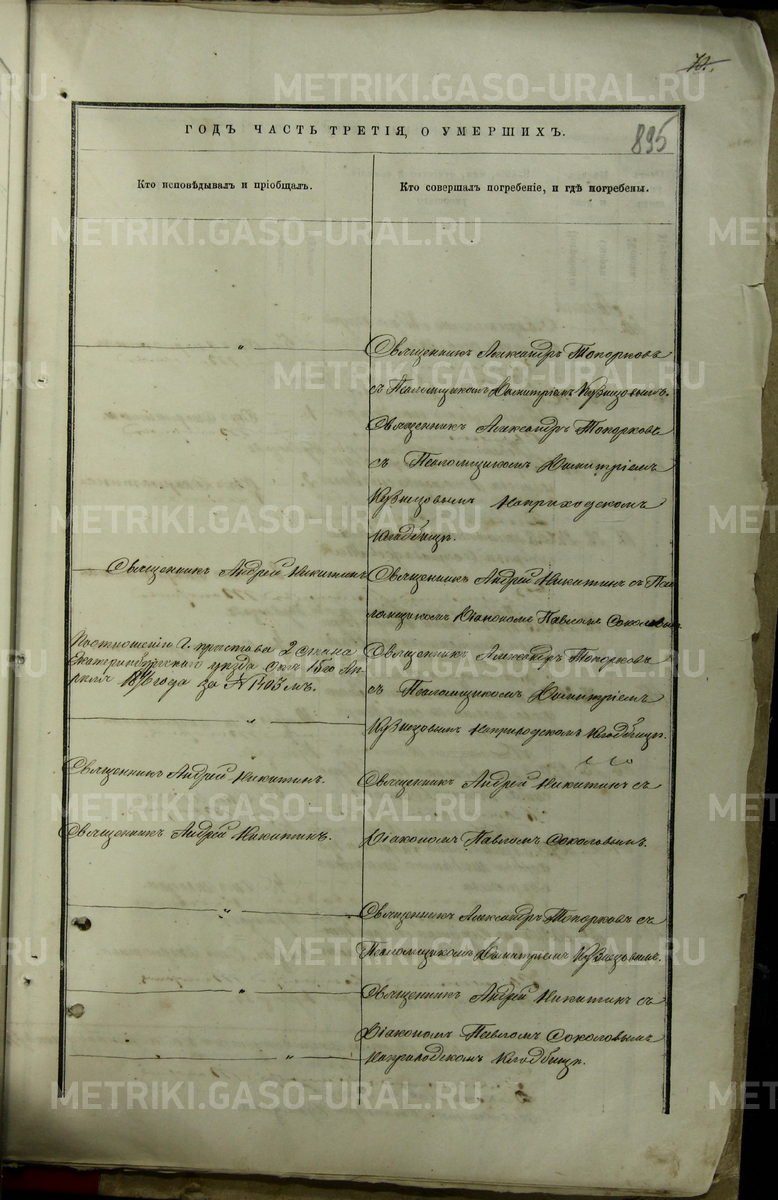 895
ГОДЪ ЧАСТЬ ТРЕТІЯ, О УМЕРШИХЪ.
Кто исповѣдывалъ и пріобщалъ.
Кто совершалъ погребеніе, и гдѣ погребены.
Священникъ Александръ Топорковъ
съ Псаломщикомъ Димитріемъ Кузнецовымъ.
Священникъ Александръ Топорковъ
съ Псаломщикомъ Димитріемъ
Кузнецовымъ на приходскомъ
кладбищѣ.
Священникъ Андрей Никитинъ
Священникъ Андрей Никитинъ съ Пса
ломщикомъ Діакономъ Павломъ Соколовымъ
По отношенію Г. пристава 2 стана
Екатеринбургскаго уѣзда отъ 15го Ап
рѣля 1876 года за № 1403мъ.
Священникъ Александръ Топорковъ
съ Псаломщикомъ Димитріемъ
Кузнецовымъ на приходскомъ кладбищѣ.
Священникъ Андрей Никитинъ.
Священникъ Андрей Никитинъ съ
Священникъ Андрей Никитинъ.
Діакономъ Павломъ Соколовымъ.
Священникъ Александръ Топорковъ съ
Псаломщикомъ Димитріемъ Кузнецовымъ.
Священникъ Андрей Никитинъ съ
Діакономъ Павломъ Соколовымъ
на приходскомъ кладбищѣ.
METRIKI.GASO-URAL.RU